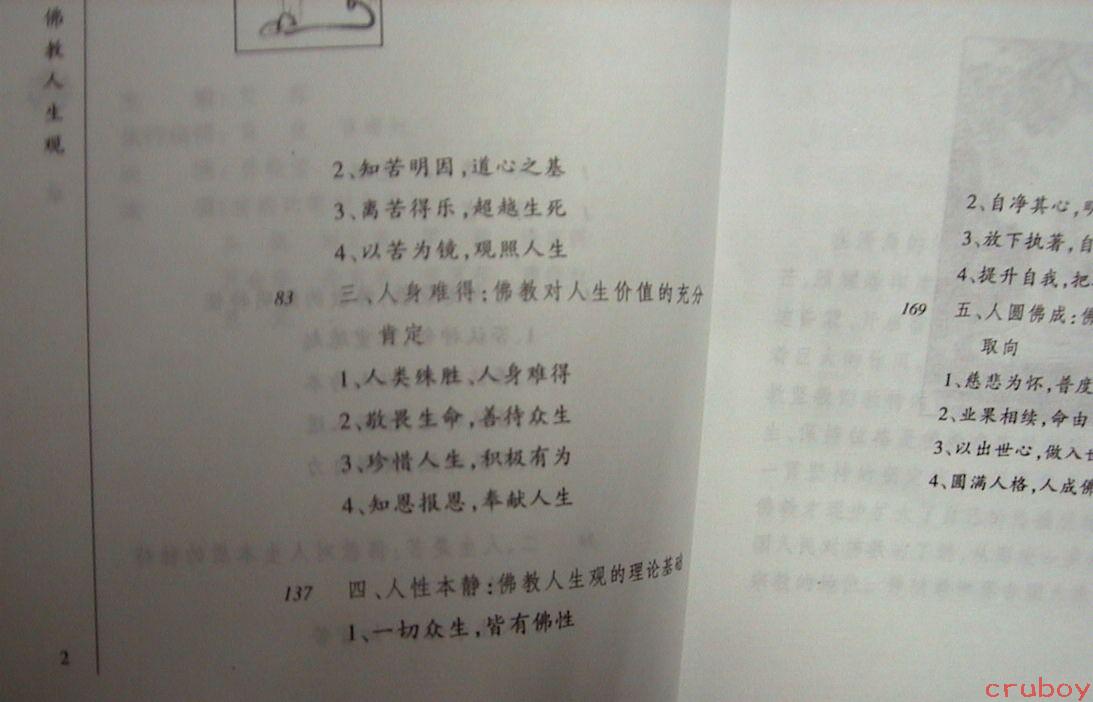 佛教人生观
2、知苦明因,道心之基
3、离苦得乐,超越生死
4、以苦为镜,观照人生
83 三、人身难得:佛教对人生价值的充分
肯定
1、人类殊胜、人身难得
2、敬畏生命,善待众生
3、珍惜人生,积极有为
4、知恩报恩,奉献人生
137 四、人性本静:佛教人生观的理论基础
1、一切众生,皆有佛性
2
2、自净其心,明
3、放下执著,自
4、提升自我,把
169 五、人圆佛成:佛
取向
1、慈悲为怀,普度
2、业果相续,命由
3、以出世心,做入世
4、圆满人格,人成佛
cruboy